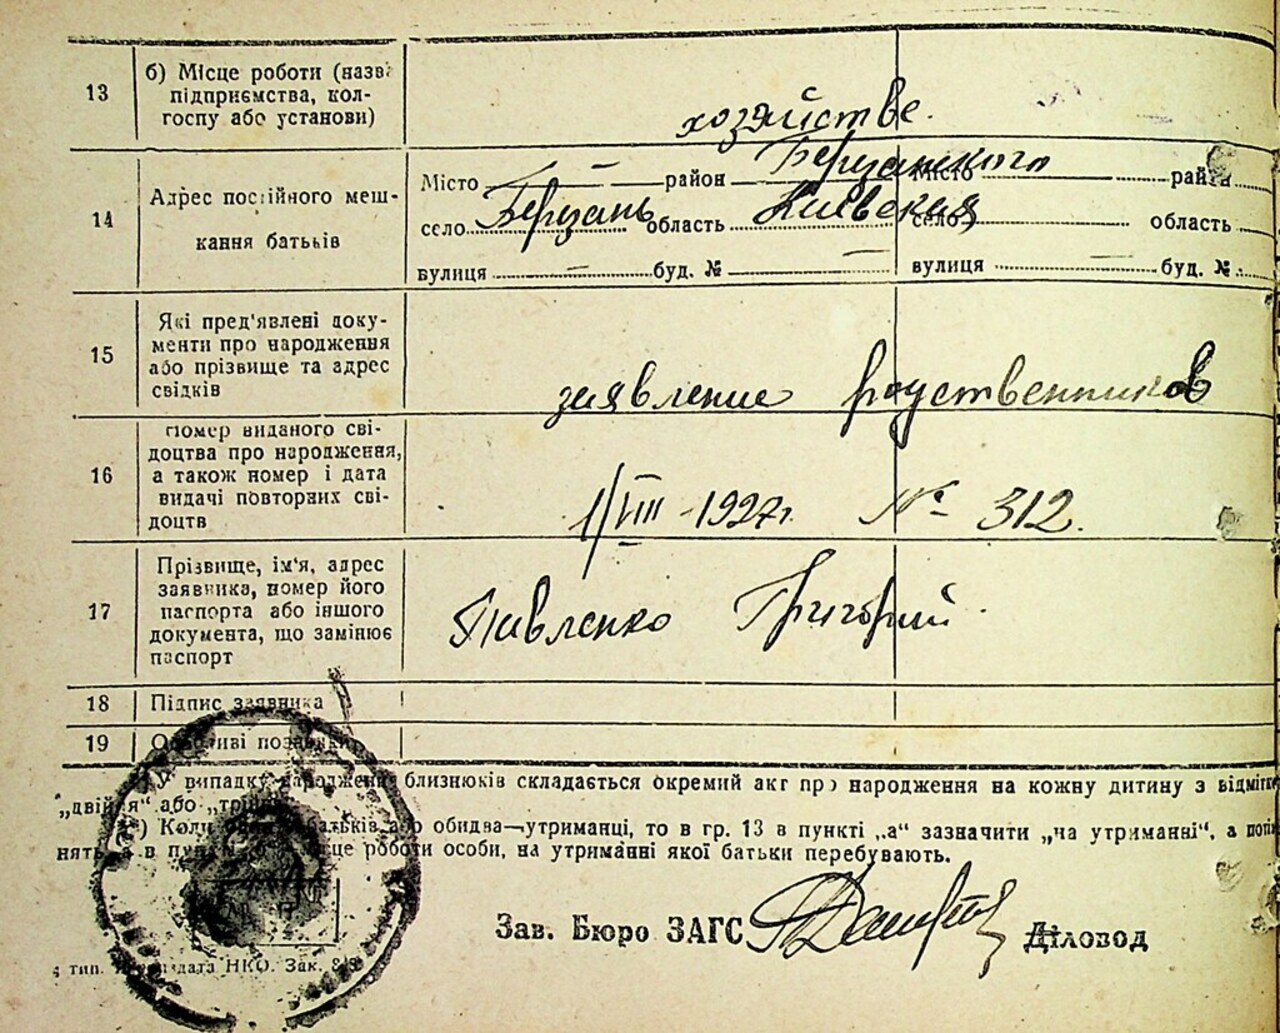 13
б) Місце роботи (назва
підприємства, кол-
госпу або установи)
хозяйстве.
14
Адрес постійного меш-
кання батьків
Місто — район Березанского Місто район
село Березань область Киевская село область
вулиця — буд. № — вулиця — буд. №
15
Які пред'явлені доку-
менти про народження
або прізвище та адрес
свідків
заявление родственников
16
Номер виданого сві-
доцтва про народження,
а також номер і дата
видачі повторних сві-
доцтв
1/VIII - 1927г. № 312.
17
Прізвище, ім'я, адрес
заявника, номер його
паспорта або іншого
документа, що замінює
паспорт
Павленко Григорий
18
Підпис заявника
19
Особливі позначки
випадку народження близнюків складається окремий акт про народження на кожну дитину з відмітк
„двійня“ або „трійня
Коли обидва—утриманці, то в гр. 13 в пункті „а“ зазначити „на утриманні“, а
в роботи особи, на утриманні якої батьки перебувають.
Зав. Бюро ЗАГС Діловод
тип. НКО. Зак.